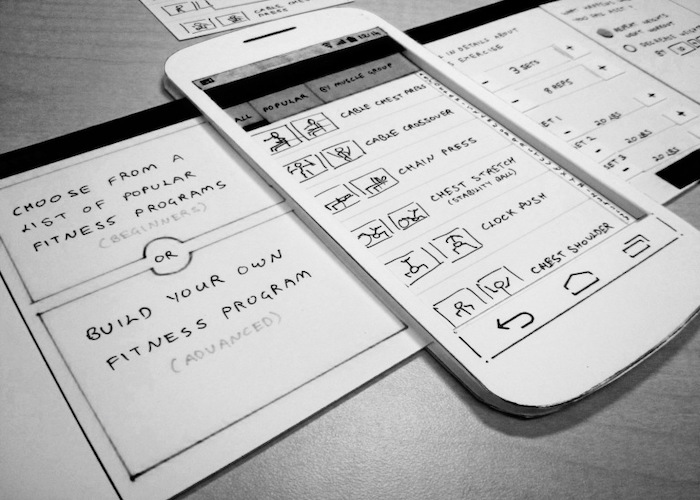 CABLE CHEST
CHOOSE FROM A
LIST OF POPULAR
FITNESS PROGRAMS
(BEGINNERS)
OR
BUILD YOUR OWN
FITNESS PROGRAM
(ADVANCED)
ALL
POPULAR
BY MUSCLE GROUP
CABLE CHEST PRESS
CABLE CROSSOVER
CHAIN PRESS
CHEST STRETCH
(STABILITY BALL)
CLOCK PUSH
CHEST SHOULDER
IN DETAILS ABOUT
EXERCISE
- 3 SETS +
- 8 REPS +
SET 1 - 20 LBS +
SET 2 - 20 LBS +
SET 3 - 20 LBS
WHAT HAPPENS
REPEAT WEIGHTS
NEXT WORKOUT
BY